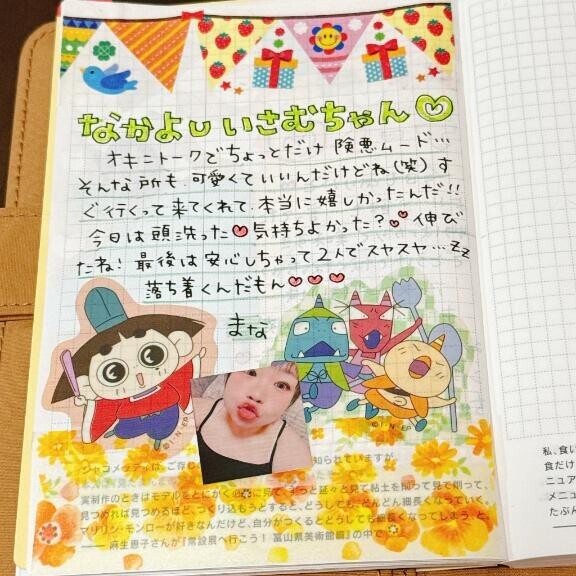 なかよしいさむちゃん♡
オキニトークでちょっとだけ険悪ムード…
そんな所も、可愛くていいんだけどね(笑)す
ぐ行くって来てくれて、本当に嬉しかったんだ!!
今日は頭洗った♥気持ちよかった?💕伸び
たね!最後は安心しちゃって2人でスヤスヤ…zz
落ち着くんだもん♥♥♥
まな
©I·N·EP
©I·N·EP
ジャコメッティは、ご存じ
知られていますが
実制作のときはモデルをとにかく
に見て、ずっと延々と見て粘土を削って見て削って、
見つめれば見つめるほど、つくり込もうとすると、どうしても、どんどん細長くなっていく。
マリリン・モンローが好きなんだけど、自分がつくるとどうしても細長くなってしまう、と。
——麻生恵子さんが『常設展へ行こう!富山県美術館篇』の中で
私、食い
食だけ
ニュア
メニュ
たぶん